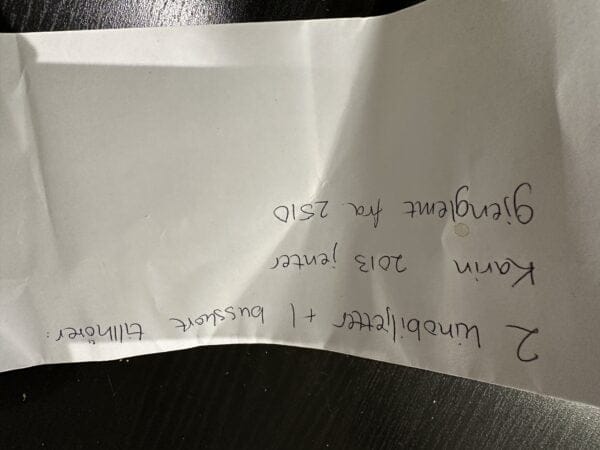 2 kinobiljetter + 1 busskort tillhører:
Karin 2013 jenter
gjenglemt fra 2510